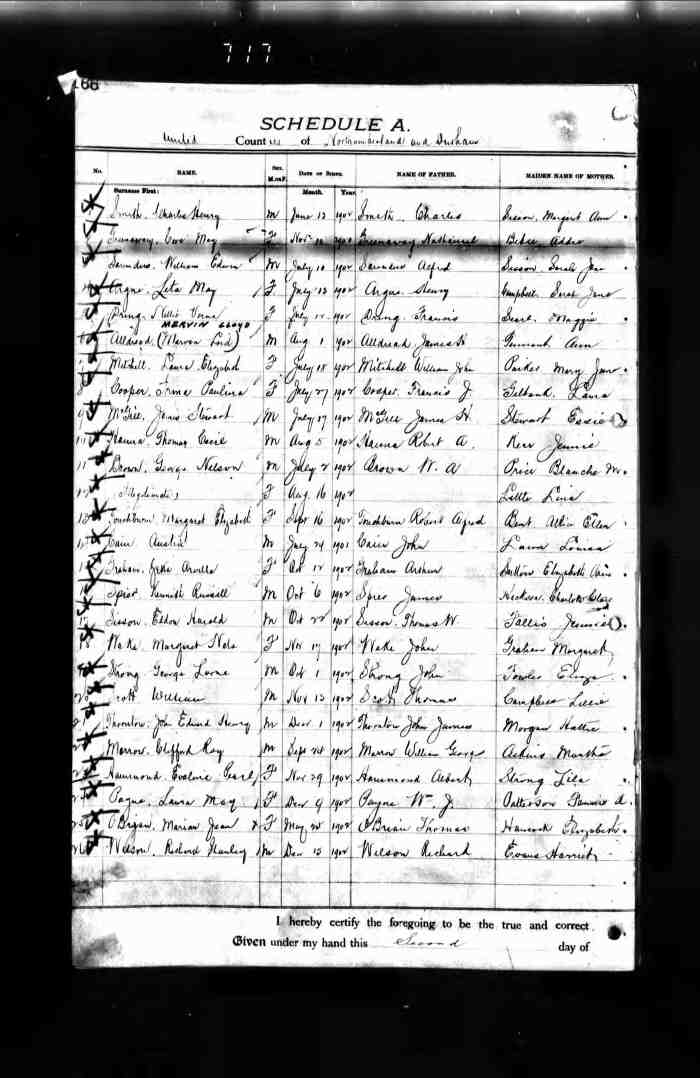 717
166
SCHEDULE A.
United Counties of Northumberland and Durham
No. NAME. Sex. M. or F. DATE OF BIRTH. NAME OF FATHER. MAIDEN NAME OF MOTHER.
Surname First: Month. Year.
Smith, Charles Henry M June 13 1902 Smith, Charles Sisson, Margaret Ann
Greenaway, May F Nov 1902 Greenaway Nathaniel Addie
Saunders, William Edwin M July 10 1902 Saunders Alfred Sisson, Sarah Jane
Argue, Leta May F July 13 1902 Argue, Henry Campbell, Sarah Jane
Verna F July 1902 Francis Searl, Maggie
MERVIN LLOYD
Alldread, (Marvon Lord) M Aug 1 1902 Alldread James H Ann
Mitchell, Laura Elizabeth F July 18 1902 Mitchell William John Parker Mary Jane
Cooper, Erma Paulina F July 27 1902 Cooper, Francis J. Gilbank, Laura
McGill, James Stewart M July 17 1902 McGill James H. Stewart Essie
Hanna Thomas Cecil M Aug 5 1902 Hanna Robert A. Kerr Jennie
Brown, George Nelson M July 2 1902 Brown W. A Price Blanche M.
(Illegitimate) F Aug 16 1902 Little Lena
Touchburn, Margaret Elizabeth F Sept 16 1902 Touchburn Robert Alfred Bent, Ellen
Cain Austin M July 24 1901 Cain John Louisa
Graham, Arvilla F Oct 12 1902 Graham Arthur Sutton Elizabeth Ann
Kenneth Russell M Oct 6 1902 James Hickson, Charlotte
Sisson, Eldon Harold M Oct 22 1902 Sisson, Thomas W. Fallis Jennie
Wake, Margaret F Nov 17 1902 Wake John Graham Margaret
Strong George Lorne M Oct 1 1902 Strong John Fowler Eliza
Scott William M Nov 13 1902 Scott Thomas Campbell Lillie
Thornton, John Edward Henry M Decr 1 1902 Thornton John James Morgan Hattie
Morrow, Clifford Roy M Sept 24 1902 Morrow William George Martha
Hammond, Evaline Pearl F Nov 29 1902 Hammond Albert Strong Lila
Payne, Laura May F Dec 9 1902 Payne Wm J. Patterson
O'Brian, Marian Jean F May 20 1902 O'Brian Thomas Hancock Elizabeth
Wilson, Richard Stanley M Dec 13 1902 Wilson Richard Evans Harriet
I hereby certify the foregoing to be the true and correct
Given under my hand this Second day of